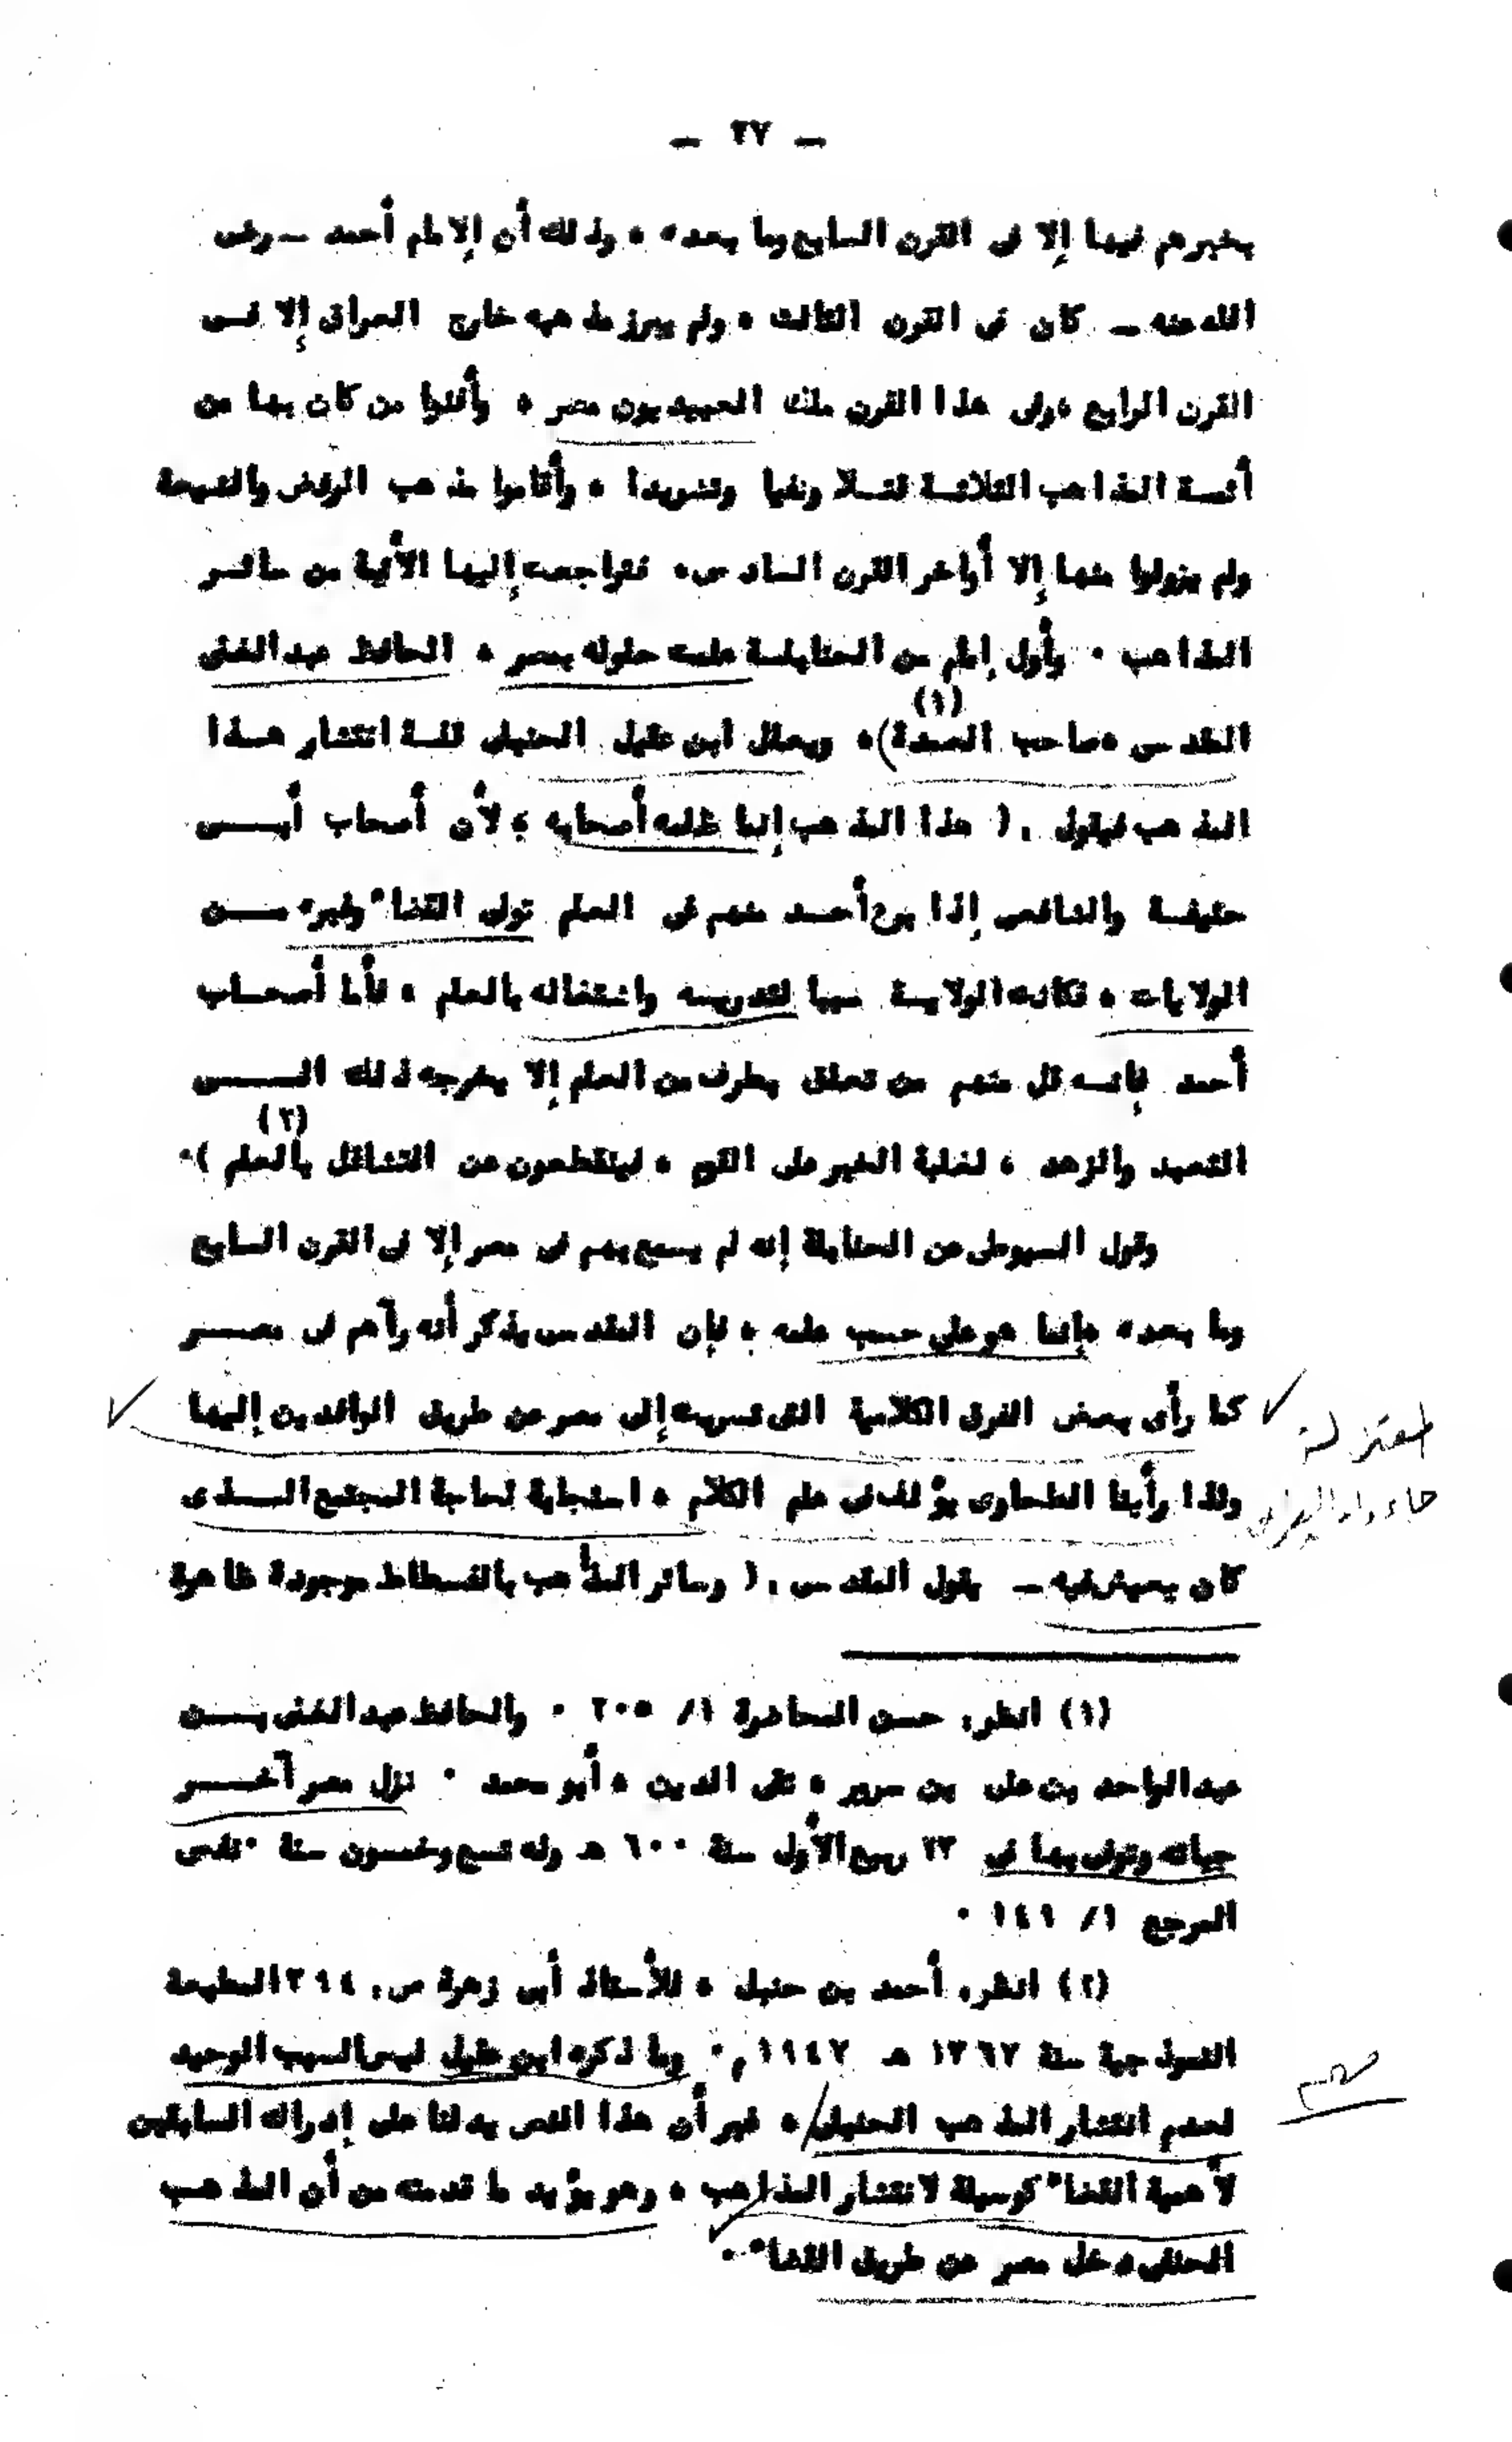 — ٢٧ —
بخبرهم فيها إلا فى القرن السابع وما بعده ، وذلك أن الإمام أحمد — رضى
الله عنه — كان فى القرن الثالث ، ولم يبرز مذهبه خارج العراق إلا فى
القرن الرابع ، وفى هذا القرن ملك العبيديون مصر ، وأفنوا من كان بها من
أئمة المذاهب الثلاثة قتلا ونفيا وتشريدا ، وأقاموا مذهب الرفض والشيعة
ولم يزولوا منها إلا أواخر القرن السادس ، فتراجعت إليها الأئمة من سائر
المذاهب . وأول إمام من الحنابلة علمت حلوله بمصر ، الحافظ عبد الغنى
المقدسى ، صاحب العمدة (١) ) ، ويعلل ابن عقيل الحنبلى قلة انتشار هذا
المذهب فيقول : ( هذا المذهب إنما ظلمه أصحابه ؛ لأن أصحاب أبى
حنيفة والشافعى إذا برع أحد منهم فى العلم تولى القضاء وغيره من
الولايات ، فكانت الولاية سببا لتدريسه واشتغاله بالعلم ، فأما أصحاب
أحمد فإنه قل منهم من تعلق بطرف من العلم إلا يخرجه ذلك الى
التعبد والزهد ، لغلبة الخير على القوم ، فينقطعون عن التشاغل بالعلم (٢) ) .
وقول السيوطى عن الحنابلة إنه لم يسمع بهم فى مصر إلا فى القرن السابع
وما بعده ، فإنما هو على حسب علمه ، فإن المقدسى يذكر أنه رآهم فى مصر
كما رأى بعض الفرق الكلامية التى تسربت إلى مصر عن طريق الوافدين إليها
ولذا رأينا الطحاوى يؤلف فى علم الكلام ، استجابة لحاجة المجتمع الذى
كان يعيش فيه — يقول المقدسى : ( وسائر المذاهب بالفسطاط موجودة ظاهرة
معتزلة
(١) انظر : حسن المحاضرة ١/ ٢٠٥ . والحافظ عبد الغنى بن
عبد الواحد بن على بن سرور ، تقى الدين ، أبو محمد . نزل مصر آخر
حياته وتوفى بها فى ٢٣ ربيع الأول سنة ٦٠٠ هـ وله تسع وخمسون سنة . نفس
المرجع ١/ ١٤٩ .
(٢) انظر : أحمد بن حنبل ، للأستاذ أبى زهرة ص : ٣٩٤ المطبعة
النموذجية سنة ١٣٦٧ هـ ١٩٤٧ م . وما ذكره ابن عقيل ليس السبب الوحيد
لعدم انتشار المذهب الحنبلى ، غير أن هذا النص يدلنا على إدراك السابقين
لأهمية القضاء كوسيلة لانتشار المذاهب ، وهو يؤيد ما قدمته من أن المذهب
الحنفى دخل مصر عن طريق القضاء .